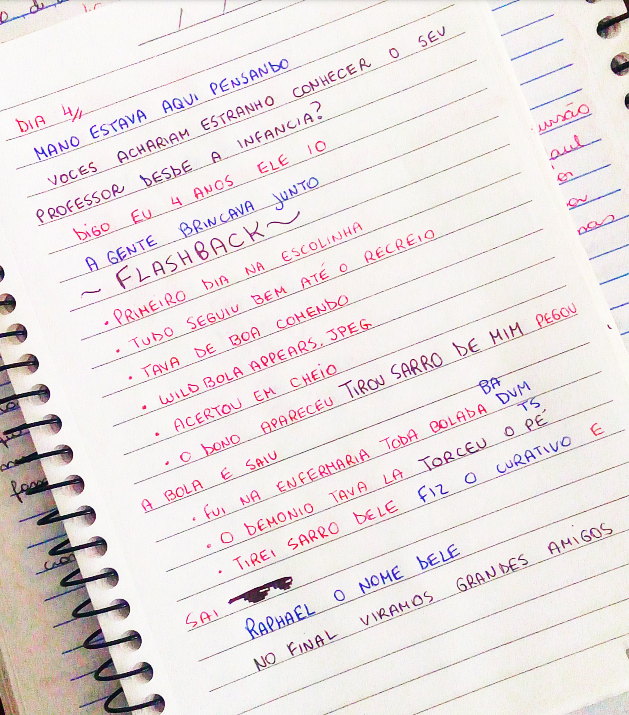 DIA 4//
MANO ESTAVA AQUI PENSANDO
VOCES ACHARIAM ESTRANHO CONHECER O SEU
PROFESSOR DESDE A INFANCIA?
DIGO EU 4 ANOS ELE 10
A GENTE BRINCAVA JUNTO
~ FLASHBACK ~
• PRIMEIRO DIA NA ESCOLINHA
• TUDO SEGUIU BEM ATÉ O RECREIO
• TAVA DE BOA COMENDO
• WILD BOLA APPEARS.JPEG
• ACERTOU EM CHEIO
• O DONO APARECEU TIROU SARRO DE MIM PEGOU
A BOLA E SAIU
• FUI NA ENFERMARIA TODA BOLADA BA DUM TS
• O DEMONIO TAVA LA TORCEU O PÉ
• TIREI SARRO DELE FIZ O CURATIVO E
SAI
RAPHAEL O NOME DELE
NO FINAL VIRAMOS GRANDES AMIGOS